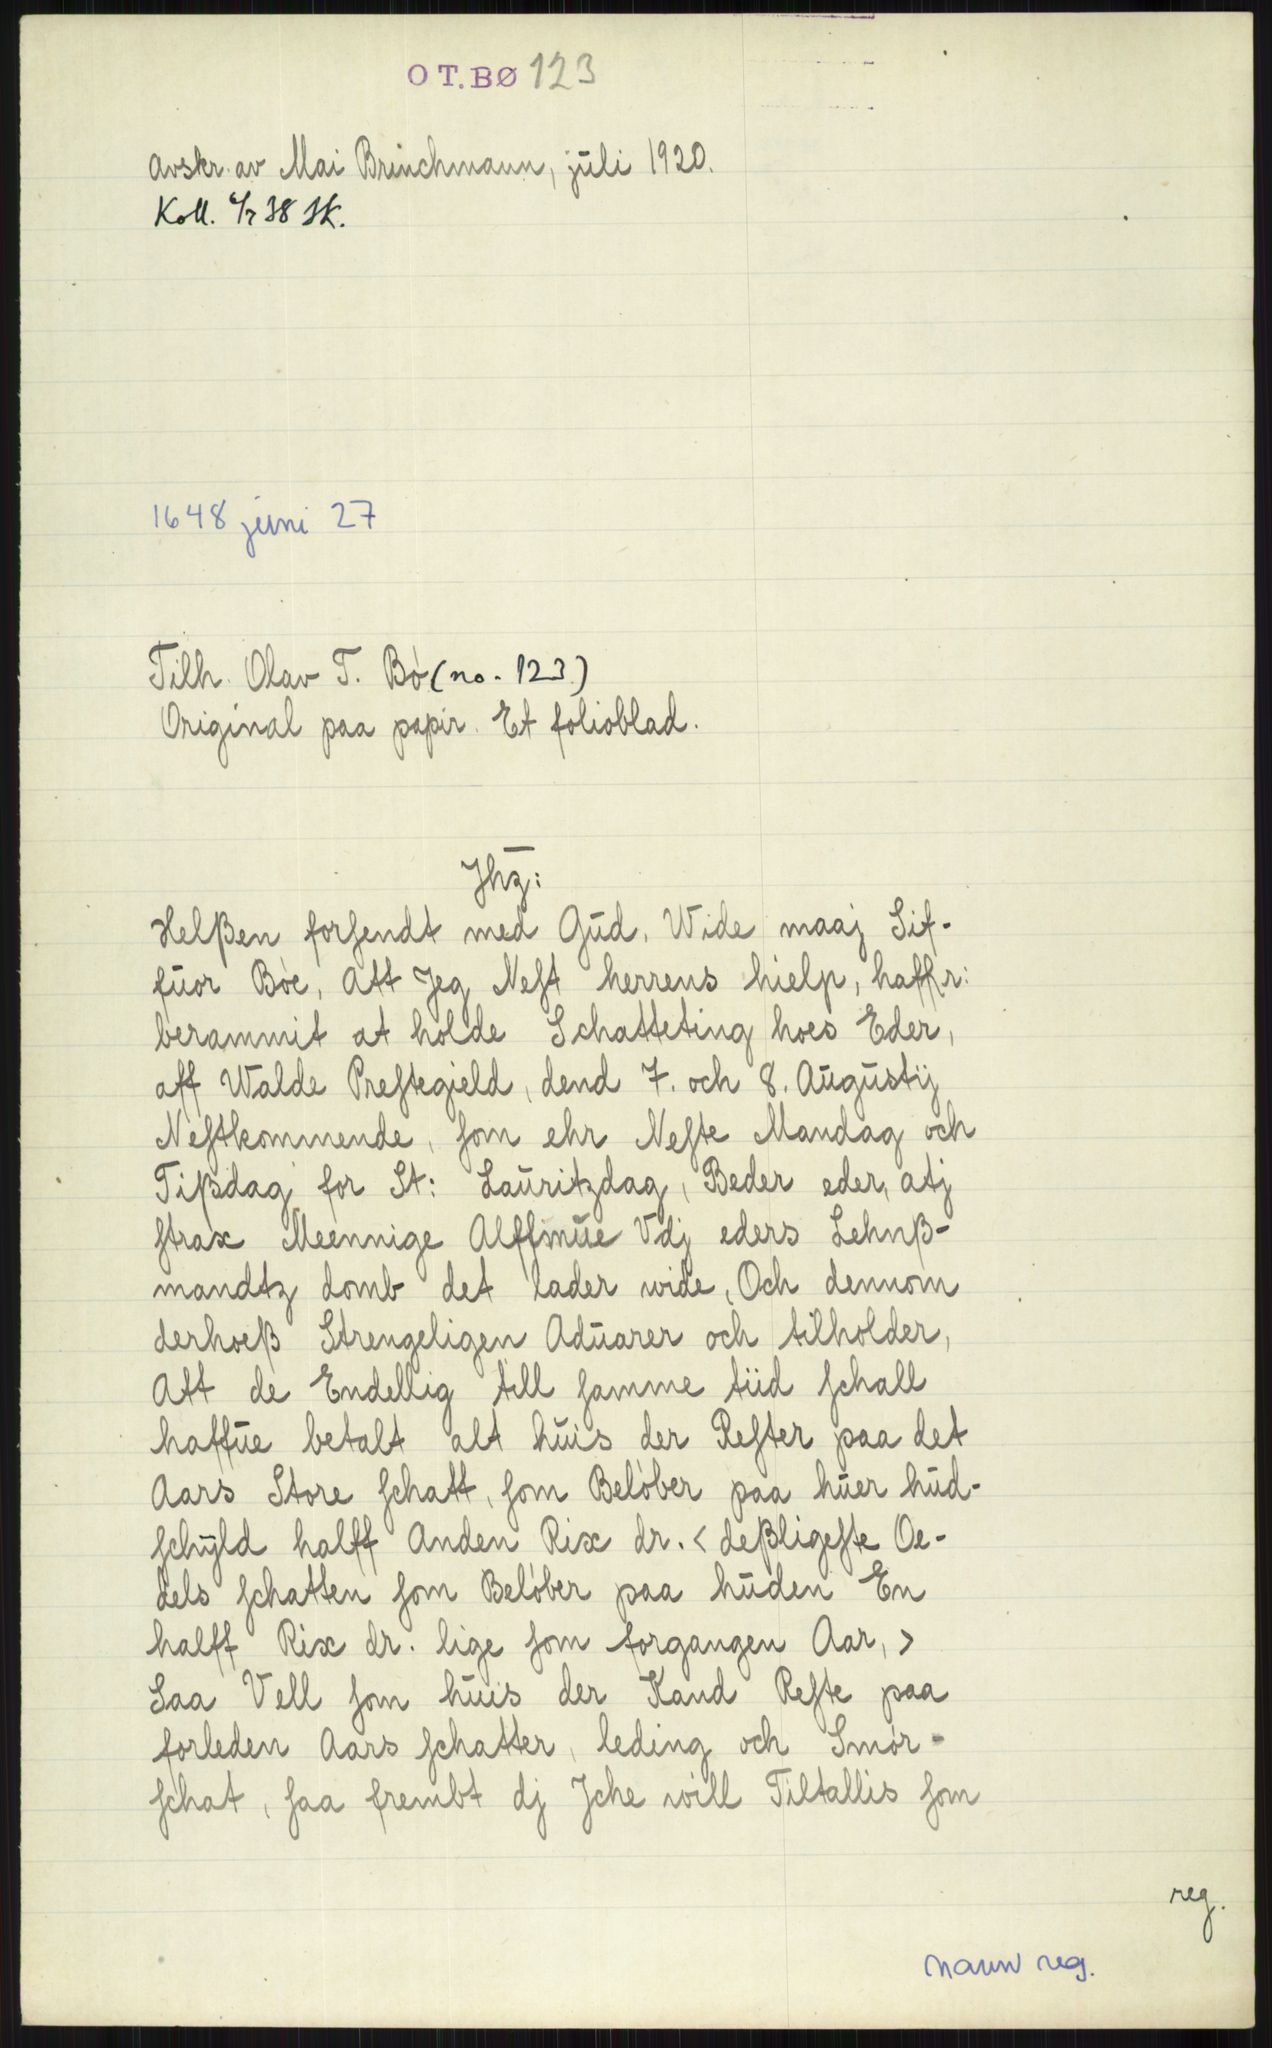 O T. BØ 123
Avskr. av Mai Brinchmann, juli 1920.
Koll. 6/7 38 SK.
1648 juni 27
Tilh. Olav T. Bø (no. 123)
Original paa papir. Et folioblad.
Jhz̄:
Helßen forſendt med Gud, Wide maaj Sif-
fuor Bøe, Att Jeg Neſt herrens hielp, haffr:
berammit at holde Schatteting hoes Eder,
aff Walde Preſtegield, dend 7. och 8. Augustij
Neſtkommende, ſom ehr Neſte Mandag och
Tißdag for St: Lauritzdag, Beder eder, atj
ſtrax Meennige Alffmue Vdj eders Lehnß-
mandtz domb det lader wide, Och dennom
derhoeß Strengeligen Aduarer och tilholder,
Att de Endellig till ſamme tiid ſchall
haffue betalt alt huis der Reſter paa det
Aars Store ſchatt, ſom Beløber paa huer hud-
ſchyld halff Anden Rix dr. < deßligeſte Oe-
dels ſchatten ſom Beløber paa huden En
halff Rix dr. lige ſom forgangen Aar, >
Saa Vell ſom huis der Kand Reſte paa
forleden Aars ſchatter, leding och Smør-
ſchat, ſaa frembt dj Jche will Tiltallis ſom
reg.
navn reg.